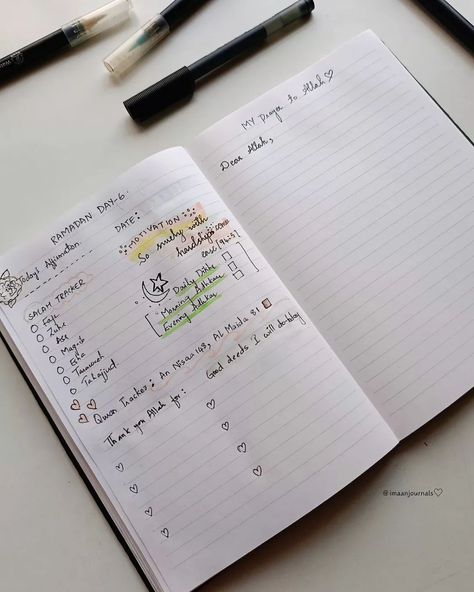 RAMADAN DAY-6:
DATE:
Today's Affirmation
MOTIVATION
So surely with
hardship comes
ease [94:5]
SALAH TRACKER
Fajr
Zuhr
Asr
Magrib
Esha
Taraweeh
Tahajjud
Daily Dhikr
Morning Adhkar
Evening Adhkar
Quran Tracker: An Nisaa 148, Al Maida 81
Thank you Allah for:
Good deeds I will do today
MY Prayer to Allah ♡
Dear Allah,
@imaanjournals♡